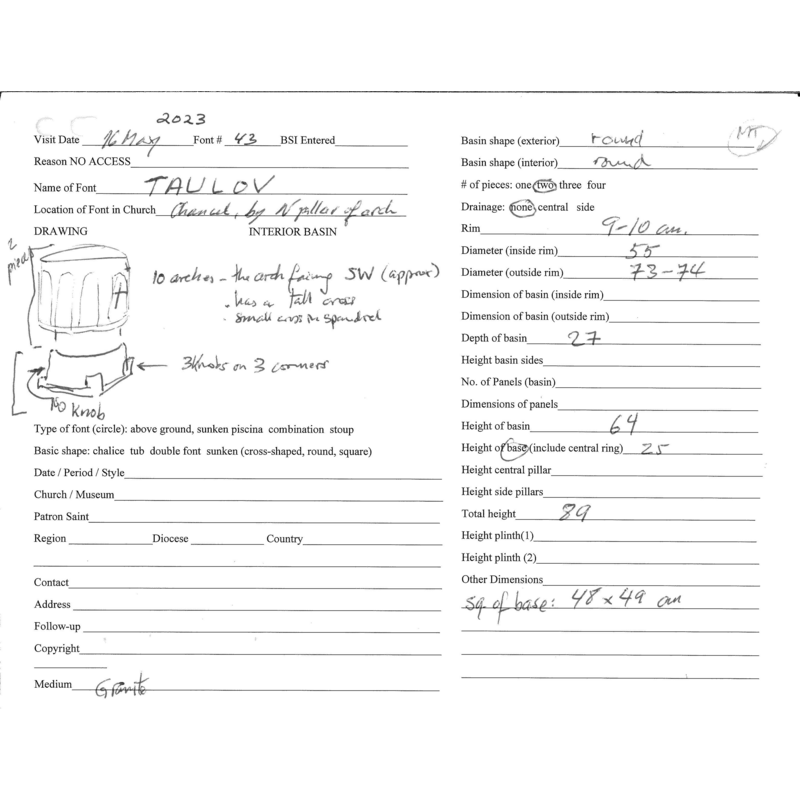 2023
Visit Date 16 May Font # 43 BSI Entered
Reason NO ACCESS
Name of Font TAULOV
Location of Font in Church Chancel, by N pillar of arch
DRAWING INTERIOR BASIN
2 pieces
10 arches - the arch facing SW (approx)
. has a tall cross
. small cross in spandrel
3 Knobs on 3 corners
No Knob
Type of font (circle): above ground, sunken piscina combination stoup
Basic shape: chalice tub double font sunken (cross-shaped, round, square)
Date / Period / Style
Church / Museum
Patron Saint
Region Diocese Country
Contact
Address
Follow-up
Copyright
Medium Granite
MT
Basin shape (exterior) round
Basin shape (interior) round
# of pieces: one two three four
Drainage: none central side
Rim 9-10 cm.
Diameter (inside rim) 55
Diameter (outside rim) 73-74
Dimension of basin (inside rim)
Dimension of basin (outside rim)
Depth of basin 27
Height basin sides
No. of Panels (basin)
Dimensions of panels
Height of basin 64
Height of base (include central ring) 25
Height central pillar
Height side pillars
Total height 89
Height plinth(1)
Height plinth (2)
Other Dimensions
Sq. of base: 48 x 49 cm